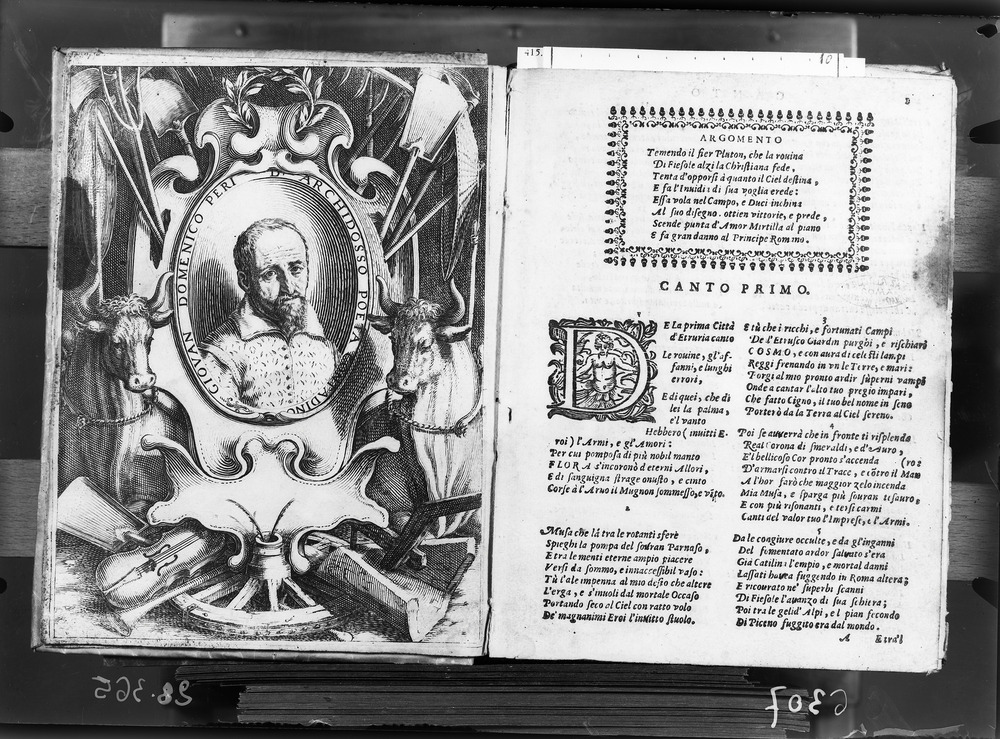 GIOVAN DOMENICO PERI D'ARCHIDOSSO POETA
415.
10
ARGOMENTO
Temendo il fier Pluton, che la rouina
Di Fiesole alzi la Christiana fede,
Tenta d'opporsi à quanto il Ciel destina,
E fa l'Inuidia di sua voglia erede:
Essa vola nel Campo, e Duci inchina
Al suo disegno. ottien vittorie, e prede,
Scende punta d'Amor Mirtilla al piano
E fa gran danno al Principe Rommo.
CANTO PRIMO.
DE La prima Città
d'Etruria canto
Le rouine, gl'af-
fanni, e lunghi
errori,
E di quei, che di
lei la palma,
e'l vanto
Hebbero (inuitti E-
roi) l'Armi, e gl'Amori:
Per cui pomposa di più nobil manto
FLORA s'incoronò d'eterni Allori,
E di sanguigna strage onusto, e cinto
Corse à l'Arno il Mugnon sommesso, e vãto.
2
Musa che là tra le rotanti sfere
Spieghi la pompa del souran Parnaso,
E tra le menti eterne ampio piacere
Versi da sommo, e innaccessibil vaso:
Tù l'ale impenna al mio desio che altere
L'erga, e s'inuoli dal mortale Occaso
Portando seco al Ciel con ratto volo
De' magnanimi Eroi l'inuitto stuolo.
3
E tù che i ricchi, e fortunati Campi
De l'Etrusco Giardin purghi, e rischiari
COSMO, e con aura di celesti lampi
Reggi frenando in vn le Terre, e mari:
Porgi al mio pronto ardir superni vampi
Onde a cantar l'alto tuo pregio impari,
Che fatto Cigno, il tuo bel nome in seno
Porterò da la Terra al Ciel sereno.
4
Poi se auuerrà che in fronte ti risplenda
Real Corona di smeraldi, e d'Auro,
E'l bellicoso Cor pronto s'accenda (ro:
D'armarsi contro il Trace, e cõtro il Mau
A l'hor farò che maggior zelo incenda
Mia Musa, e sparga più souran tesauro,
E con più risonanti, e tersi carmi
Canti del valor tuo l'Imprese, e l'Armi.
Da le congiure occulte, e da gl'inganni
Del fomentato ardor saluato s'era
Già Catilina l'empio, e mortal danni
Lassati hauea fuggendo in Roma altera;
E ricourato ne' superbi scanni
Di Fiesole l'auanzo di sua schiera;
Poi tra le gelid'Alpi, e'l pian secondo
Di Piceno fuggito era dal mondo.
A E tra'l
28.365
6307